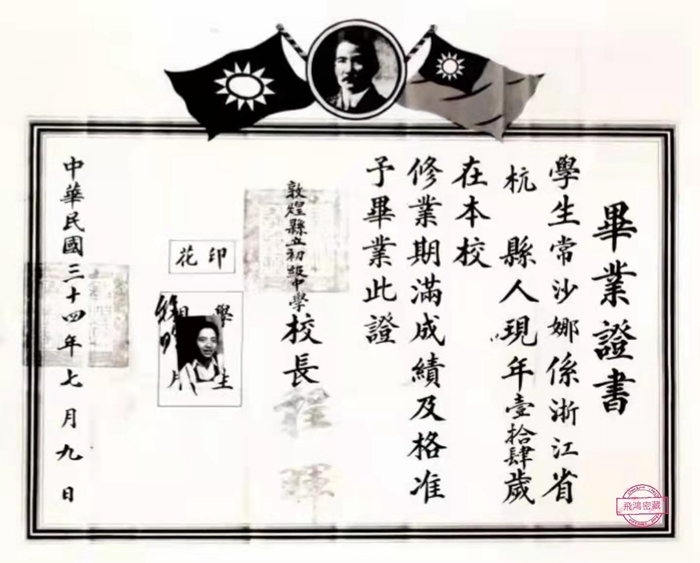 畢業證書
學生常沙娜係浙江省
杭縣人現年壹拾肆歲
在本校
修業期滿成績及格准
予畢業此證
敦煌縣立初級中學校長程暉
印花
學生
相片
中華民國三十四年七月九日
飛鴻密藏